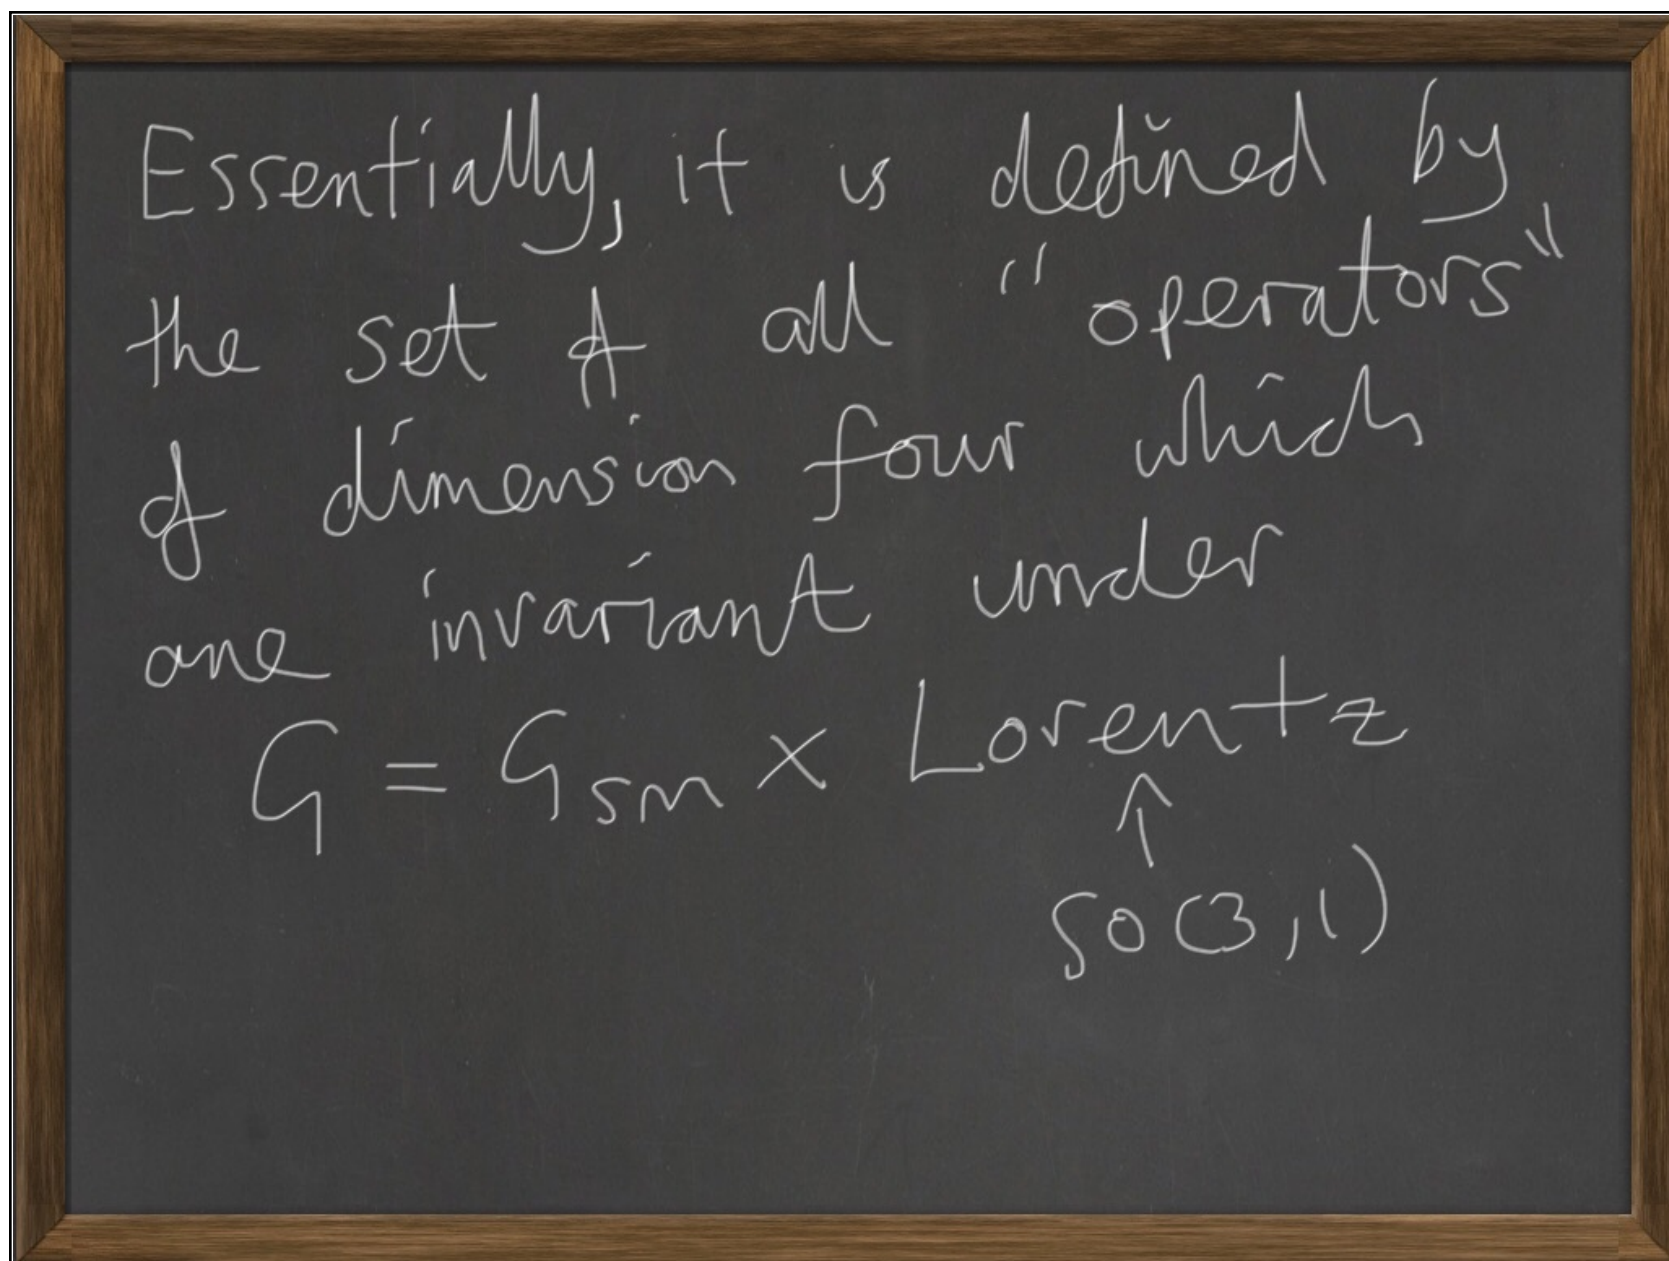 Essentially, it is defined by
the set of all "operators"
of dimension four which
are invariant under
G = G_SM × Lorentz
↑
SO(3,1)